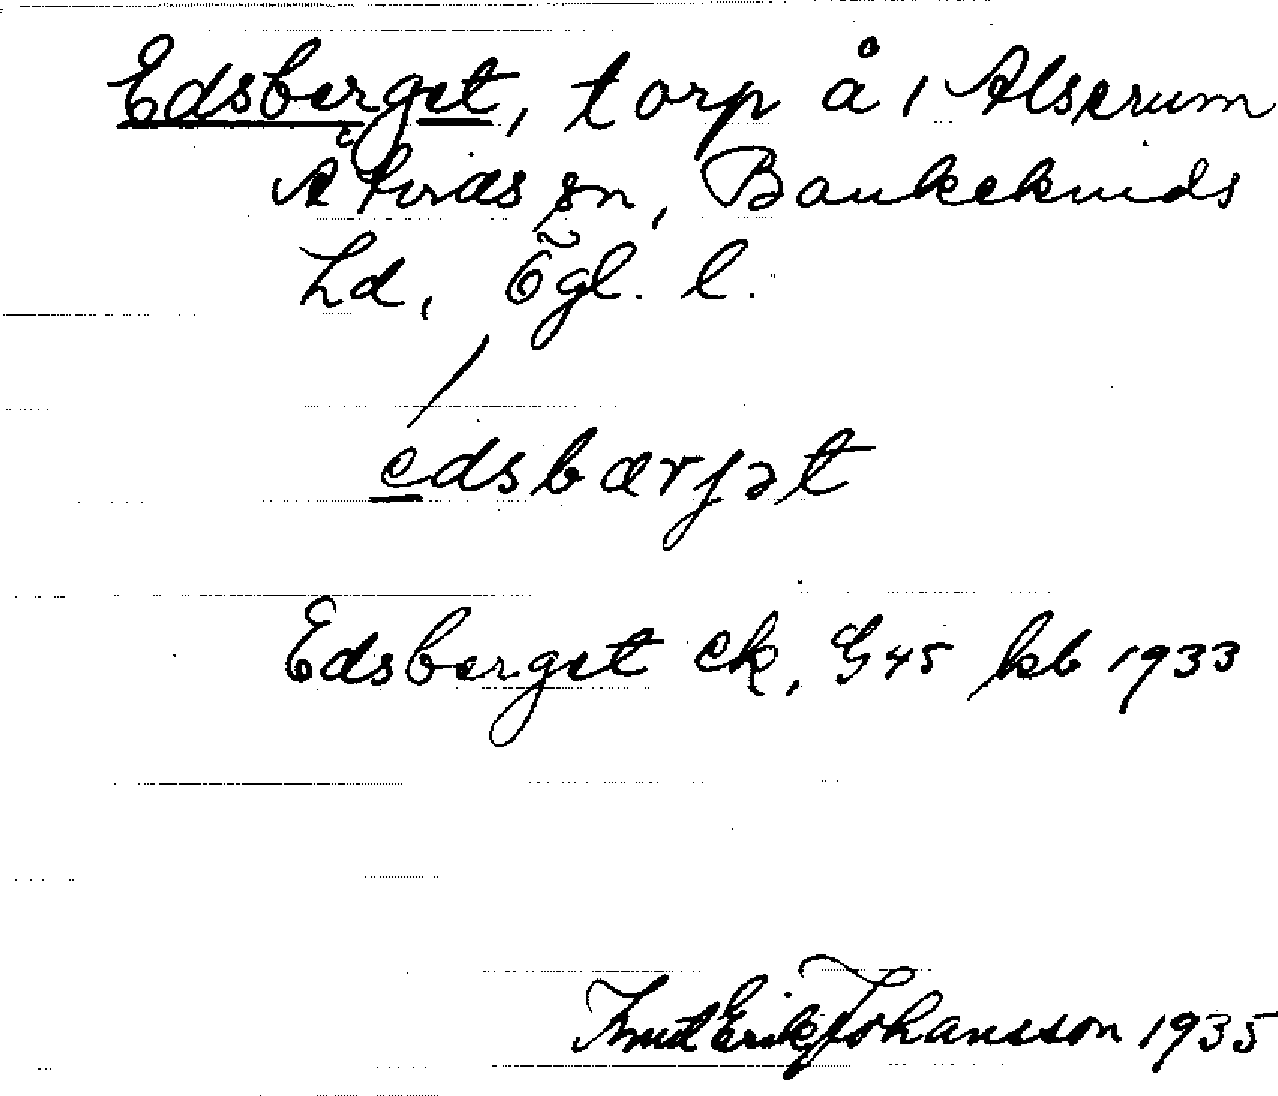 Edsberget, torp å 1 Alserum
Åtvids sn, Bankekinds
hd, Ögl. l.
edsbærjət
Edsberget ek, G45 kb 1933
Knut Erik Johansson 1935